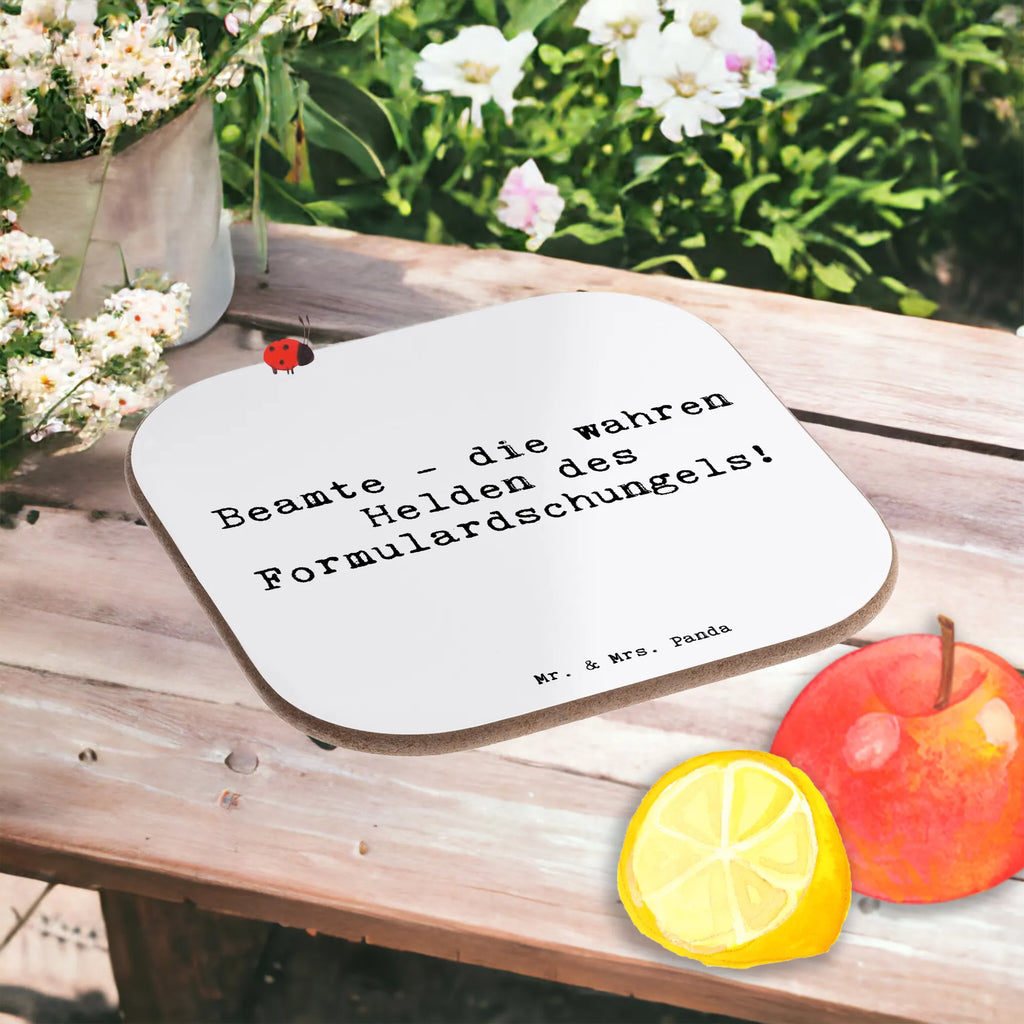 Beamte - die wahren
Helden des
Formulardschungels!
Mr. & Mrs. Panda